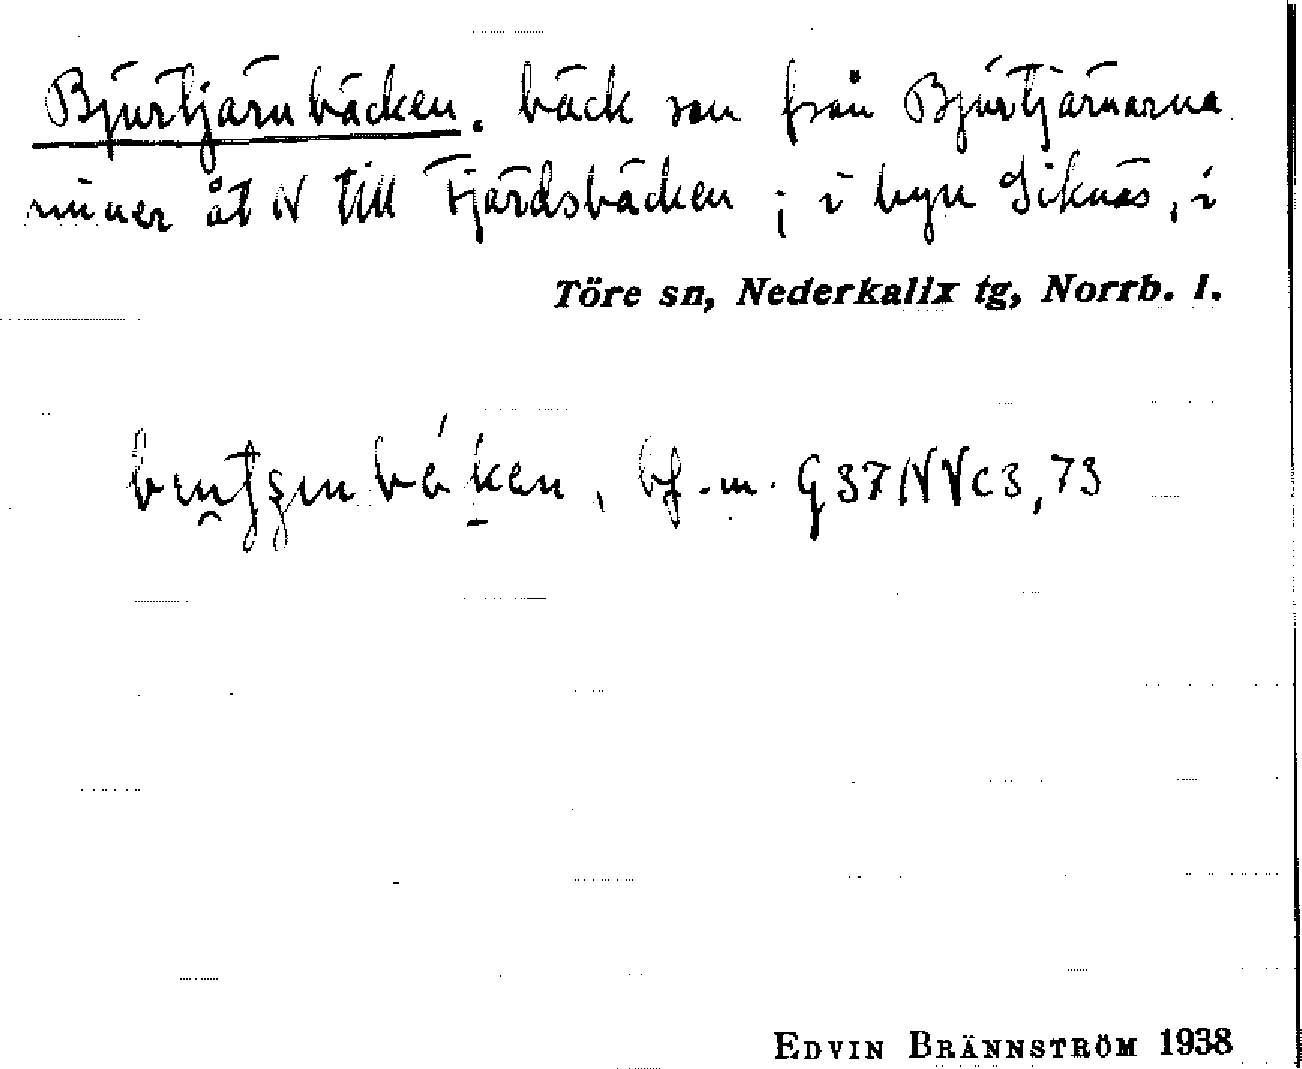 Bjurtjärnbäcken. bäck som från Bjurtjärnarna
rinner åt N till Fjärdsbäcken; i byn Siknäs, i
Töre sn, Nederkalix tg, Norrb. l.
bf. m. G37NVc3,73
EDVIN BRÄNNSTRÖM 1938